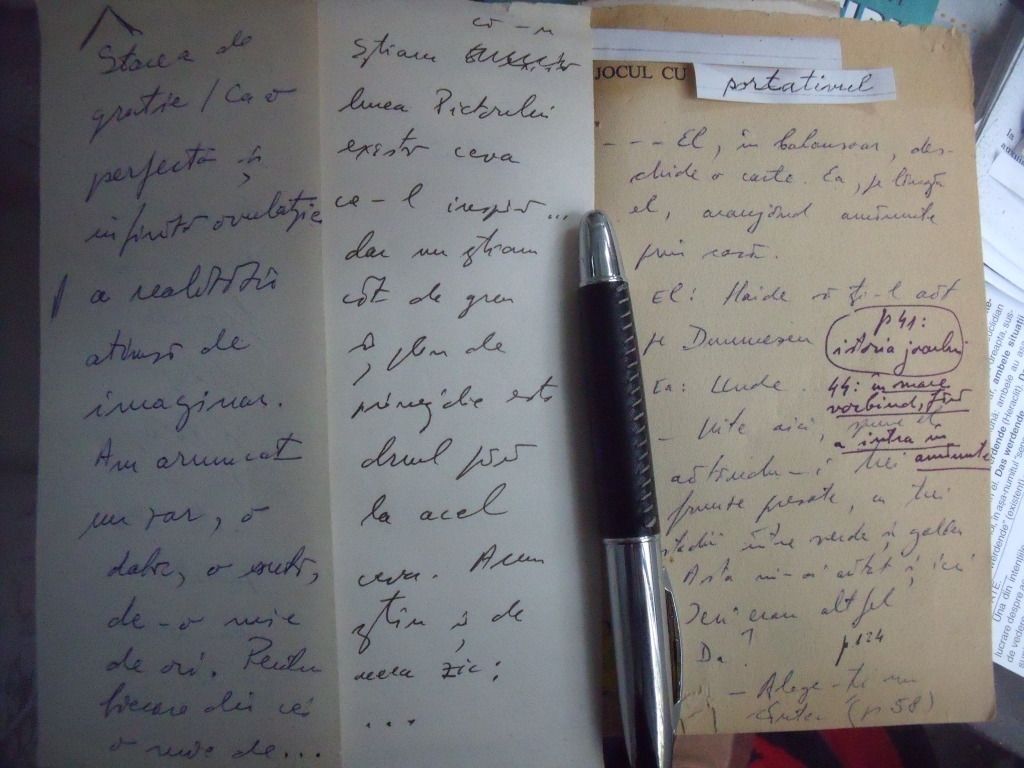 Starea de
grație / Ca o
perfectă și
infinită ovulație
a realității
atinsă de
imaginar.
Am aruncat
un zar, o
dată, o sută,
de-o mie
de ori. Pentru
fiecare din cei
o mie de...
că-n
Știam
lumea Pictorului
există ceva
ce-l inspiră...
dar nu știam
cât de greu
și plin de
primejdie este
drumul până
la acel
ceva. Acum
știu și de
aceea zic:
...
JOCUL CU portativul
--- El, în balansoar, des-
chide o carte. Ea, pe lângă
el, aranjând amănunte
prin casă.
El: Haide să ți-l arăt
pe Dumnezeu
p 41:
istoria jocului
Ea: Unde.
44: în mare
vorbind, fără
a intra în
amănunte
- Uite aici, spune el
arătându-i trei
frunze presate, cu trei
stadii între verde și galben
Asta mi-ai arătat și ieri
Ieri erau altfel
Da?
p 124
- Alege-ți un
(p 58)